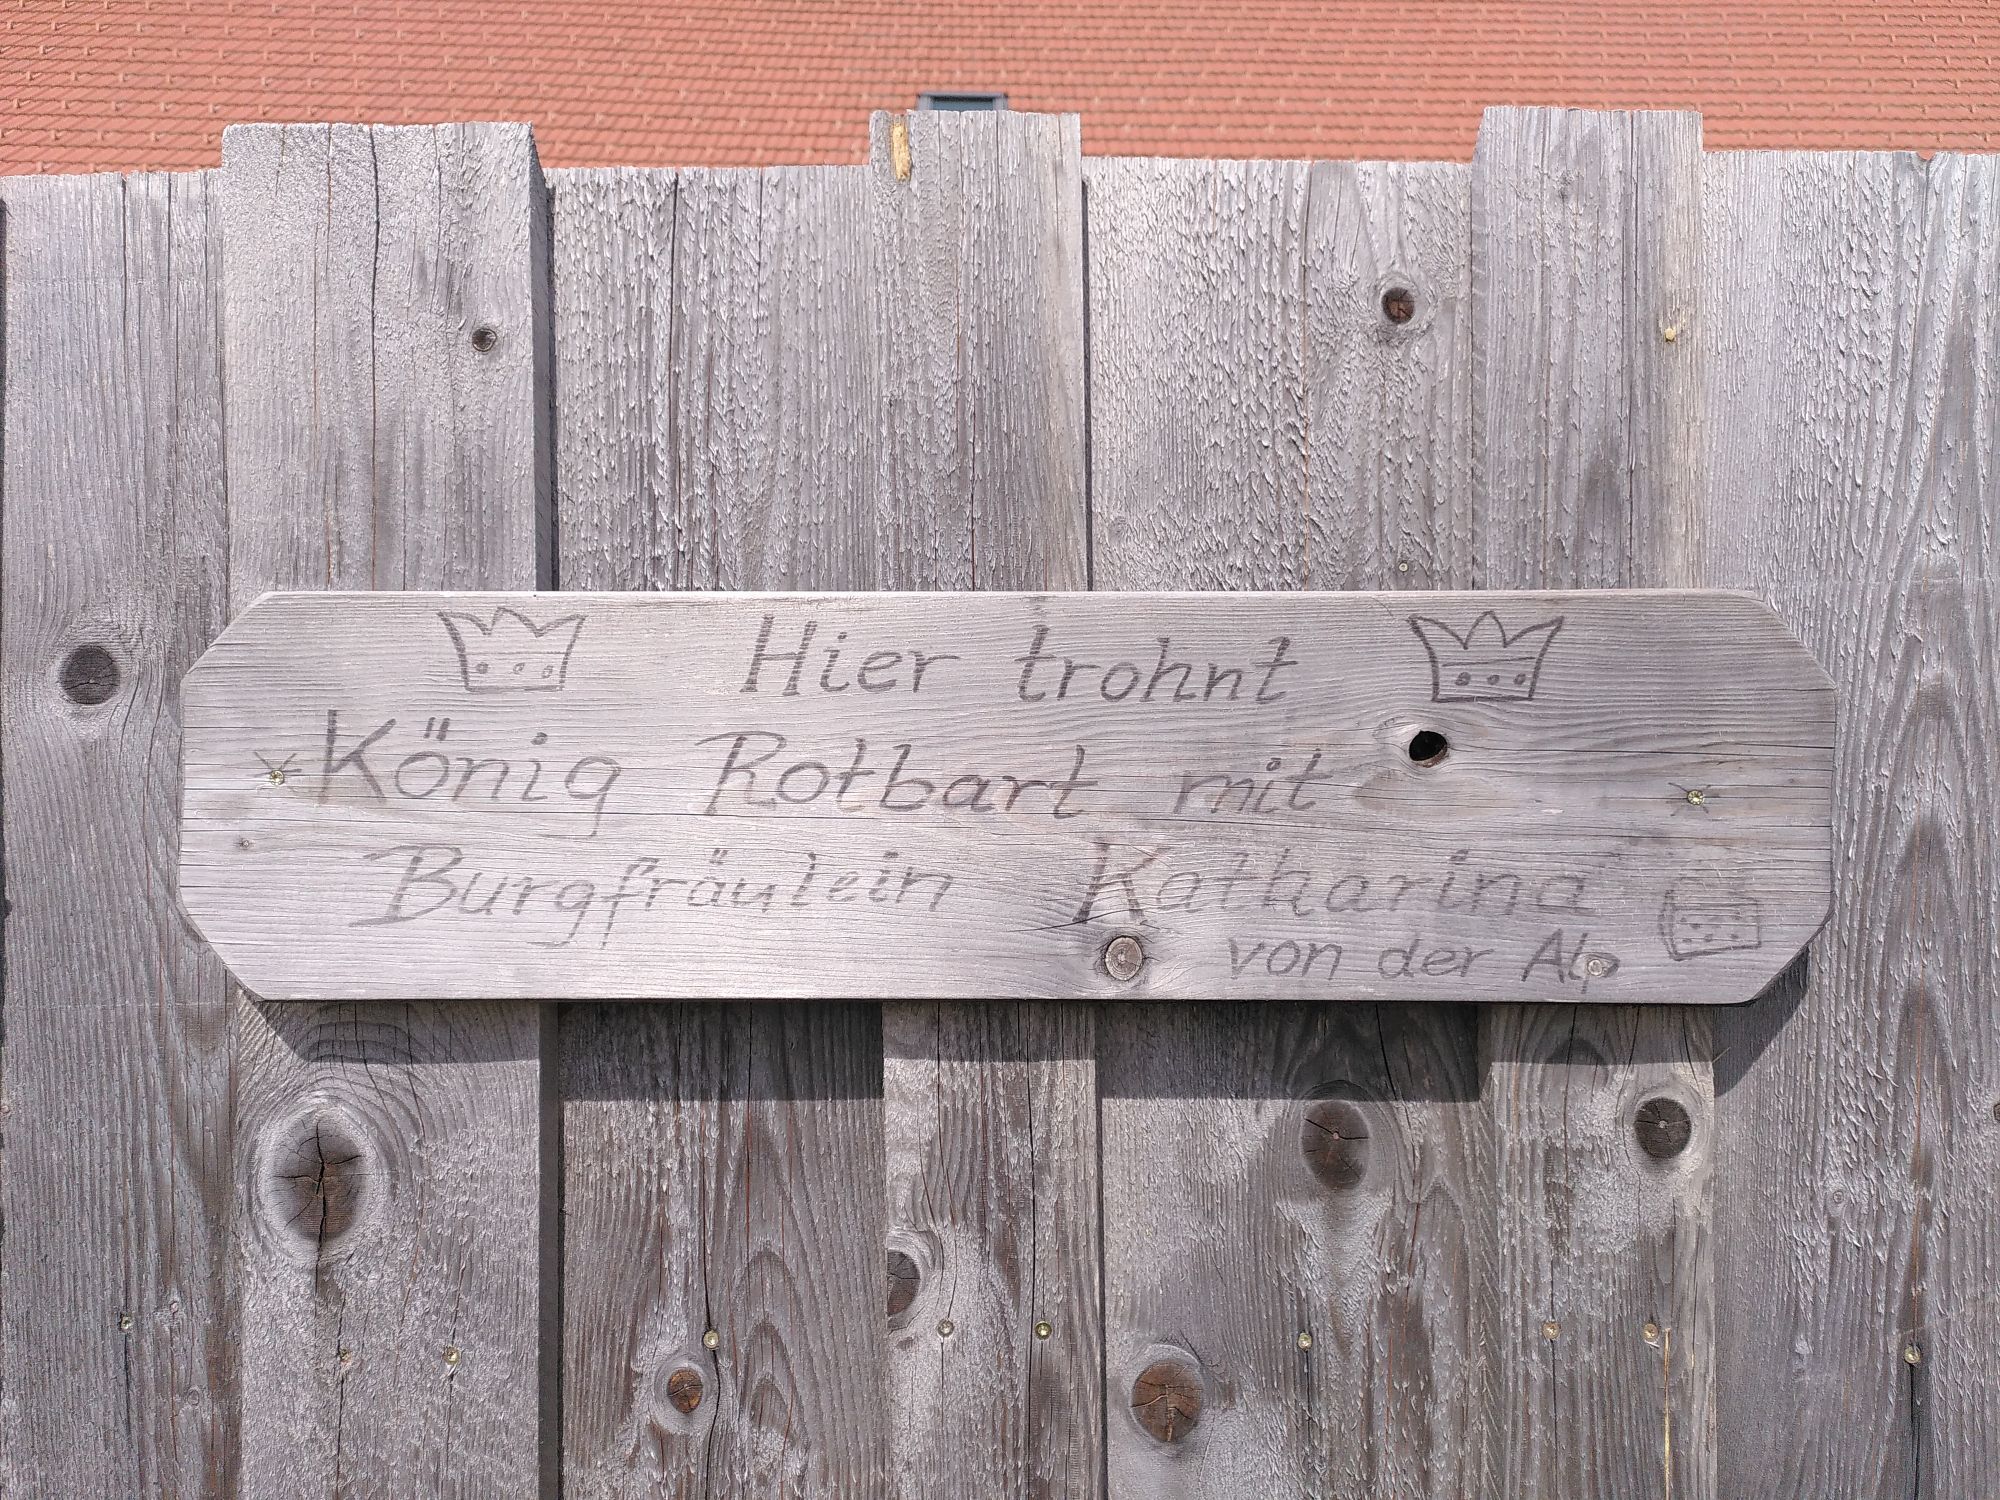 Hier trohnt
König Rotbart mit
Burgfräulein Katharina
von der Alp